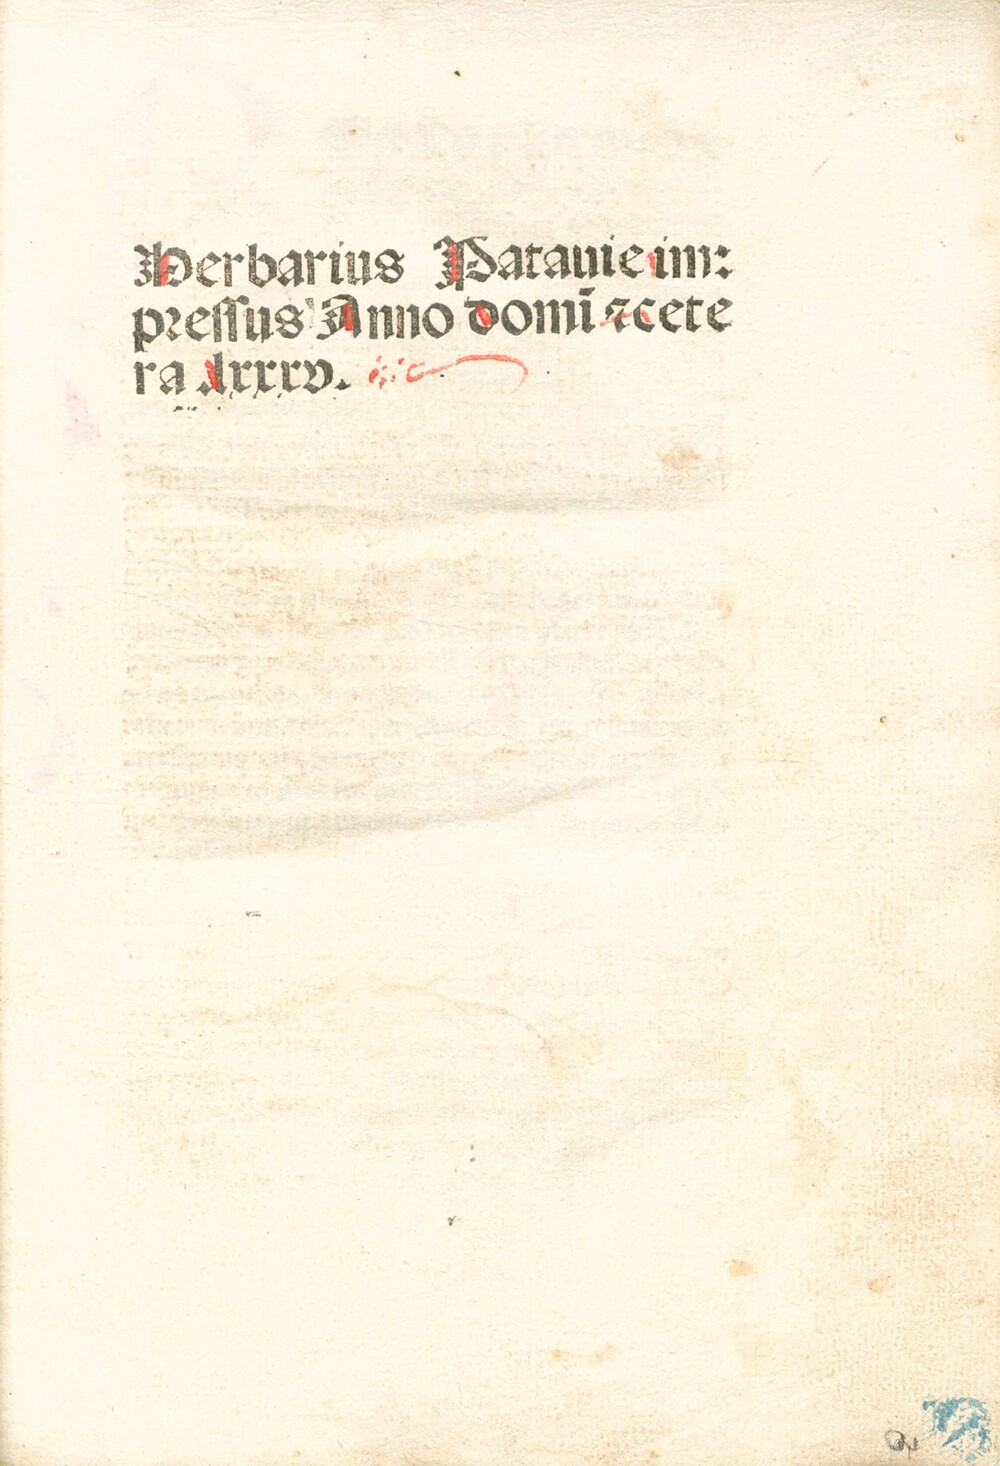 Herbarius Patauie im:
pressus Anno domī ⁊cete
ra lxxxv.